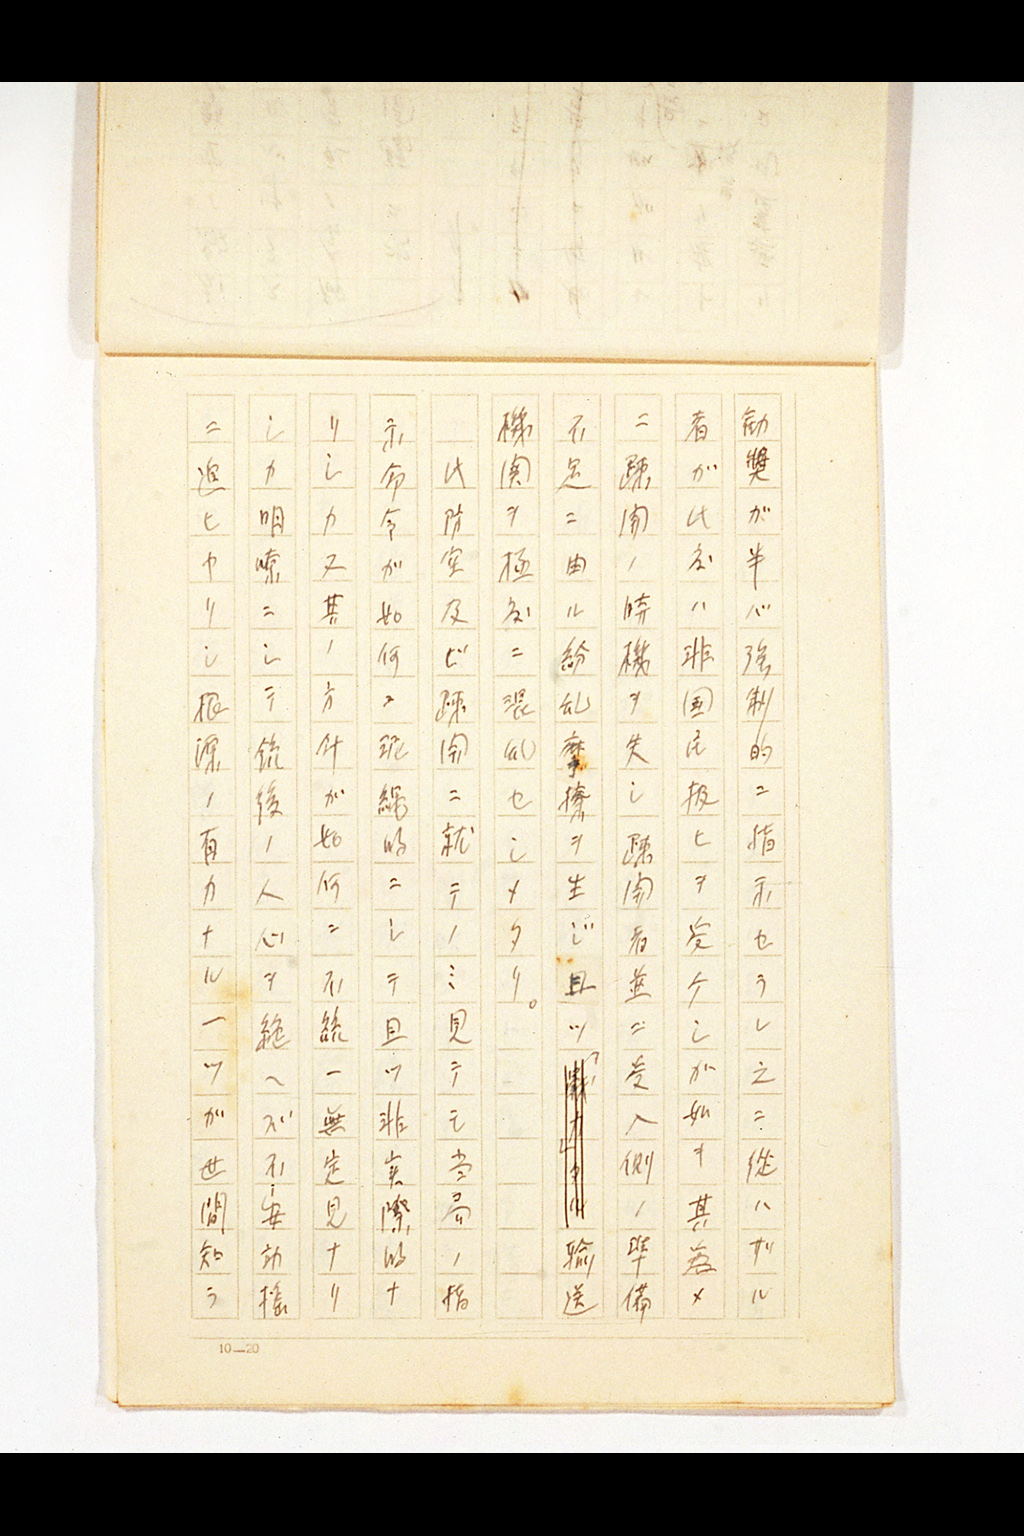 勧奨ガ半バ強制的ニ指示セラレ之ニ従ハザル
者ガ此度ハ非国民扱ヒヲ受ケシガ如キ其為メ
ニ疎開ノ時機ヲ失シ疎開者並ニ受入側ノ準備
不足ニ由ル紛乱摩擦ヲ生ジ且ツ輸送
機関ヲ極度ニ混乱セシメタリ。
此防空及ビ疎開ニ就テノミ見テモ当局ノ指
示命令ガ如何ニ泥縄的ニシテ且ツ非実際的ナ
リシカ又其ノ方針ガ如何ニ不統一無定見ナリ
シカ明瞭ニシテ銃後ノ人心ヲ絶ヘズ不安動揺
ニ追ヒヤリシ根深ノ有力ナル一ツガ世間知ラ
10—20